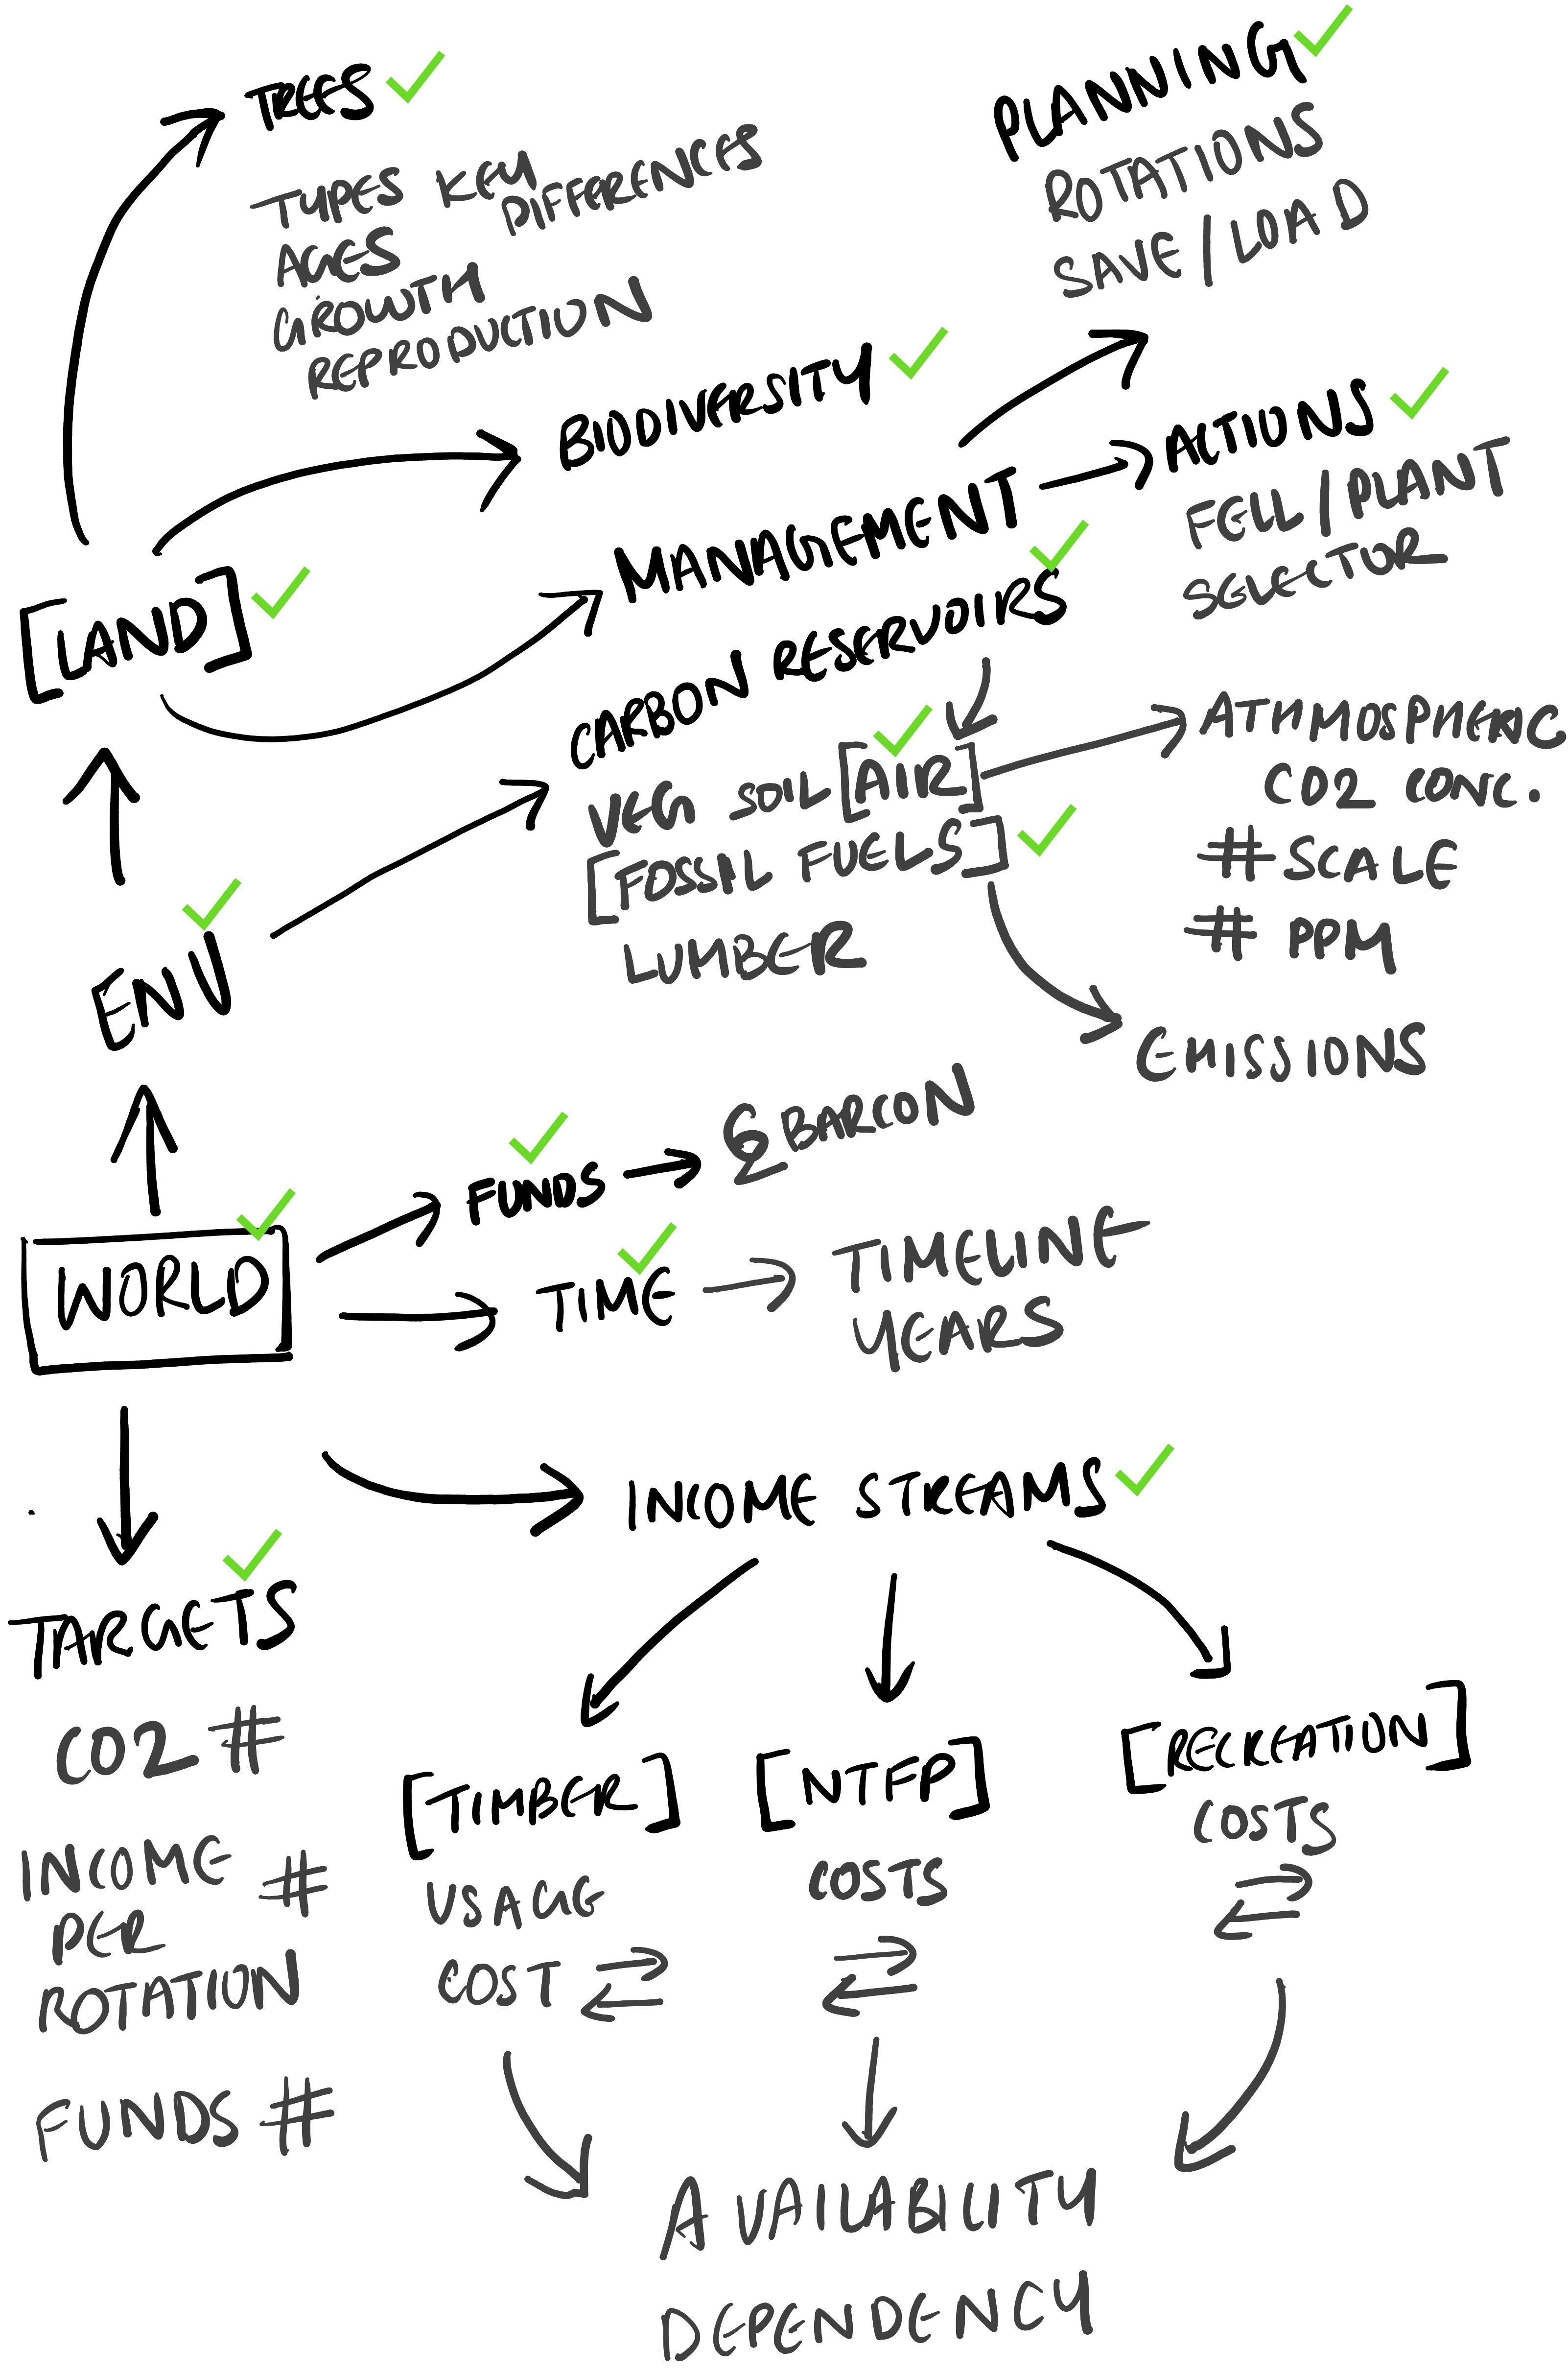 TREES
TYPES KEY DIFFERENCES
AGES
GROWTH
REPRODUCTION
PLANNING
ROTATIONS
SAVE/LOAD
BIODIVERSITY
MANAGEMENT
ACTIONS
FELL/PLANT
SELECTOR
[LAND]
CARBON RESERVOIRS
VEG SOIL [AIR]
[FOSSIL FUELS]
LUMBER
ATHMOSPHERIC
CO2 CONC.
# SCALE
# PPM
EMISSIONS
ENV
FUNDS
BARCON
WORLD
TIME
TIMELINE
YEARS
INCOME STREAMS
TARGETS
CO2 #
INCOME #
PER
ROTATION
FUNDS #
[TIMBER]
USAGE
COST
[NTFP]
COSTS
[RECREATION]
COSTS
AVAILABILITY
DEPENDENCY